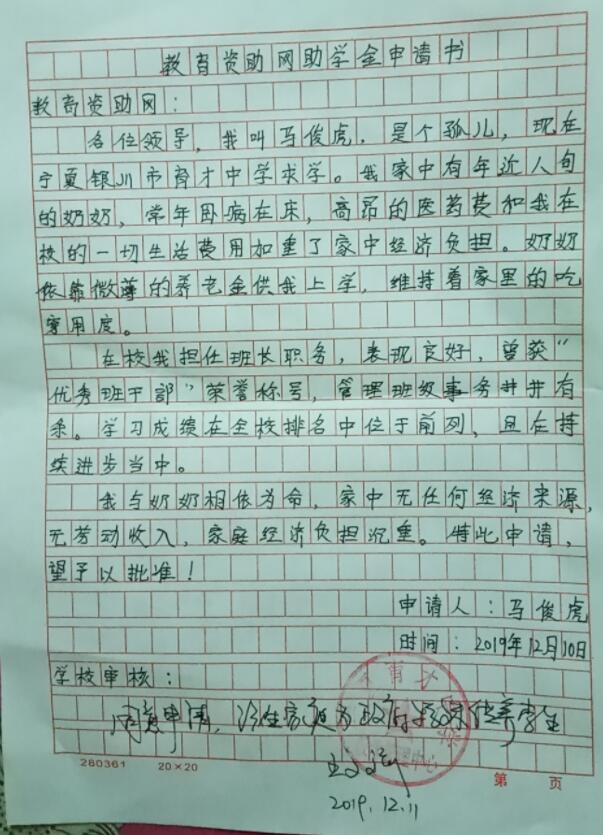 教育资助网助学金申请书
教育资助网：
各位领导，我叫马俊虎，是个孤儿，现在
宁夏银川市育才中学求学。我家中有年近八旬
的奶奶，常年卧病在床，高昂的医药费和我在
校的一切生活费用加重了家中经济负担。奶奶
依靠微薄的养老金供我上学，维持着家里的吃
穿用度。
在校我担任班长职务，表现良好，曾获“
优秀班干部”荣誉称号，管理班级事务井井有
条。学习成绩在全校排名中位于前列，且在持
续进步当中。
我与奶奶相依为命，家中无任何经济来源，
无劳动收入，家庭经济负担沉重。特此申请，
望予以批准！
申请人：马俊虎
时间：2019年12月10日
学校审核：
同意申请，该生家庭为政府
育才
中心
280361 20×20
第 页
2019.12.11